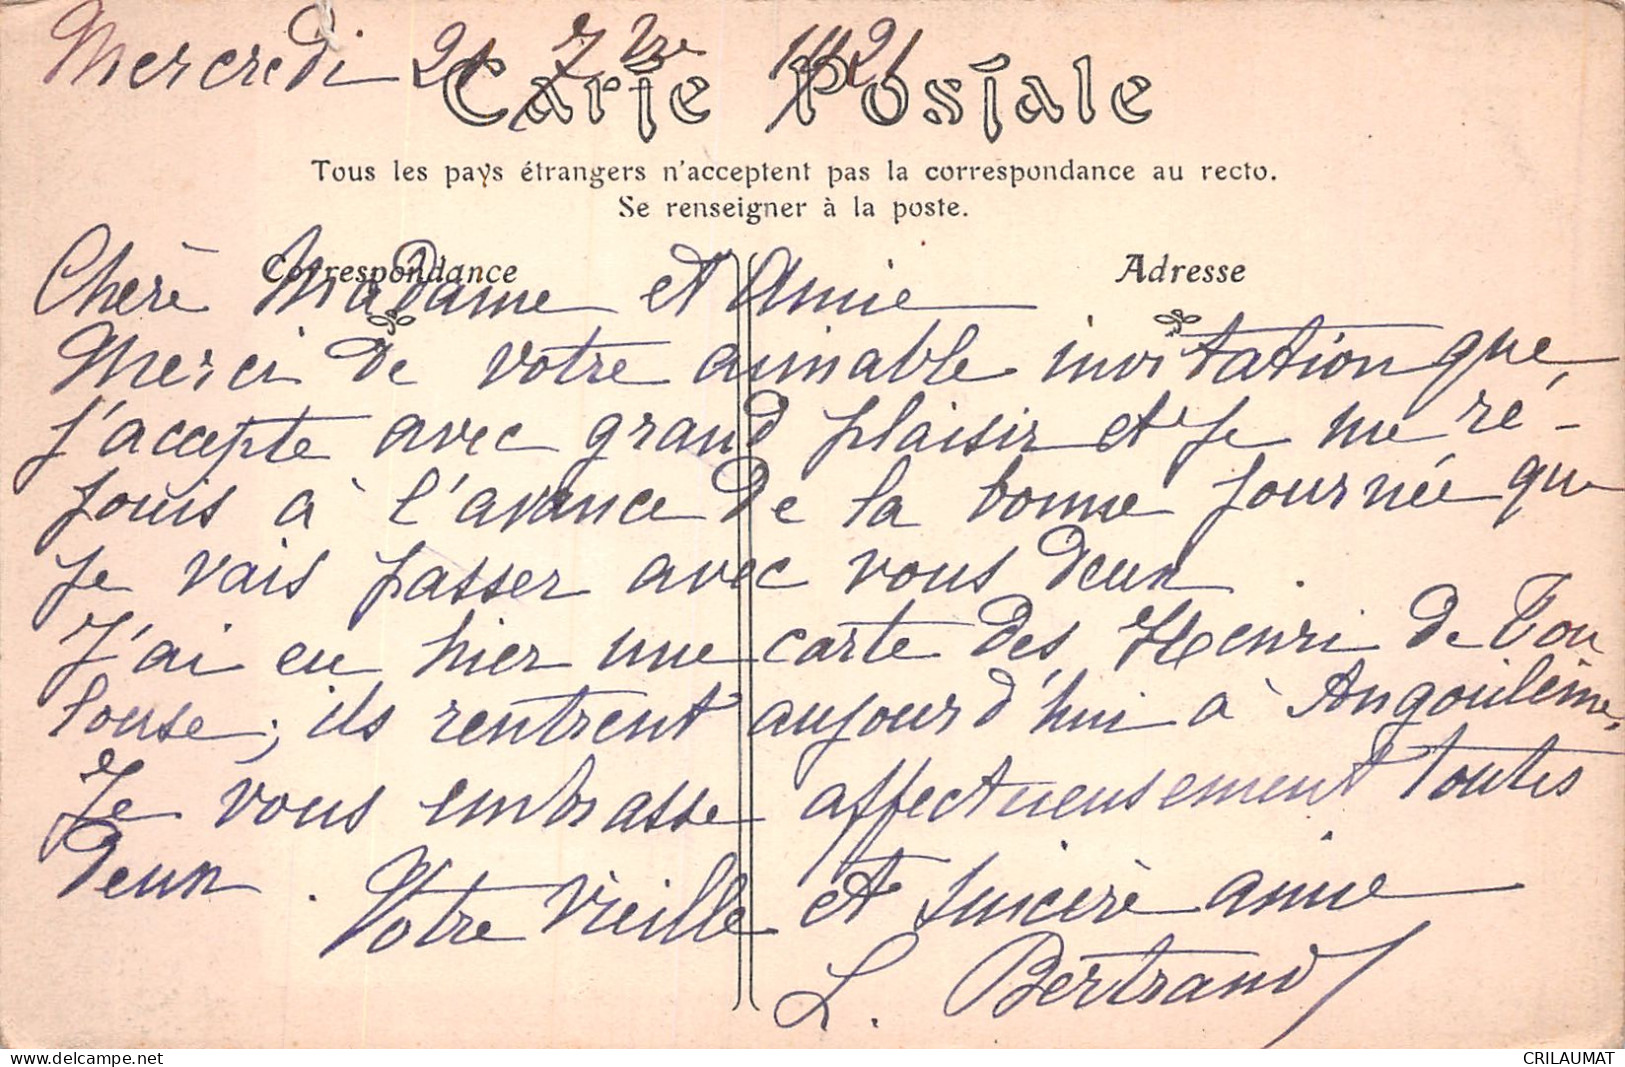 Mercredi 21 7bre 1921
Carte Postale
Tous les pays étrangers n'acceptent pas la correspondance au recto.
Se renseigner à la poste.
Correspondance
Adresse
Chère Madame et Amie
Merci de votre aimable invitation que
j'accepte avec grand plaisir et je me ré-
jouis à l'avance de la bonne journée que
je vais passer avec vous deux.
J'ai eu hier une carte des Henri de Tou
louse; ils rentrent aujourd'hui à Angoulême.
Je vous embrasse affectueusement toutes
deux. Votre vieille et sincère amie
L. Bertrand
delcampe.net
CRILAUMAT